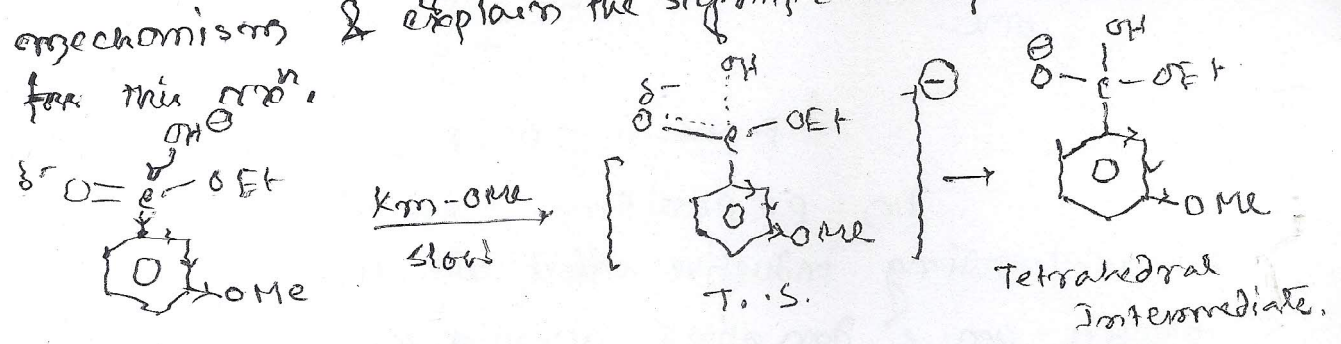 mechanism & explain the
for this rxn.
OH⊖
δ- O=C-OEt
OMe
Km-OMe
slow
δ- O OH
C-OEt
OMe
T.S.
⊖
→
⊖ OH
O-C-OEt
OMe
Tetrahedral
Intermediate.